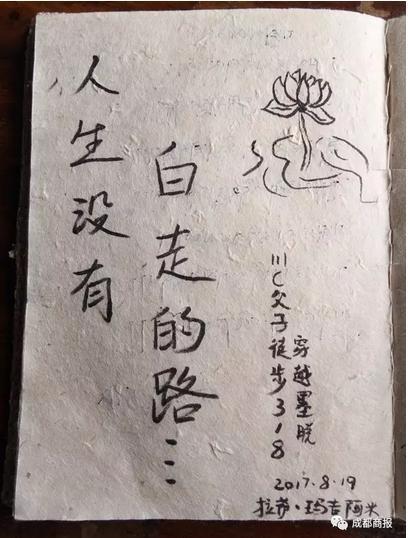 人生没有
白走的路…
川C父子徒步318
穿越墨脱
2017.8.19
拉萨·玛吉阿米
成都商报